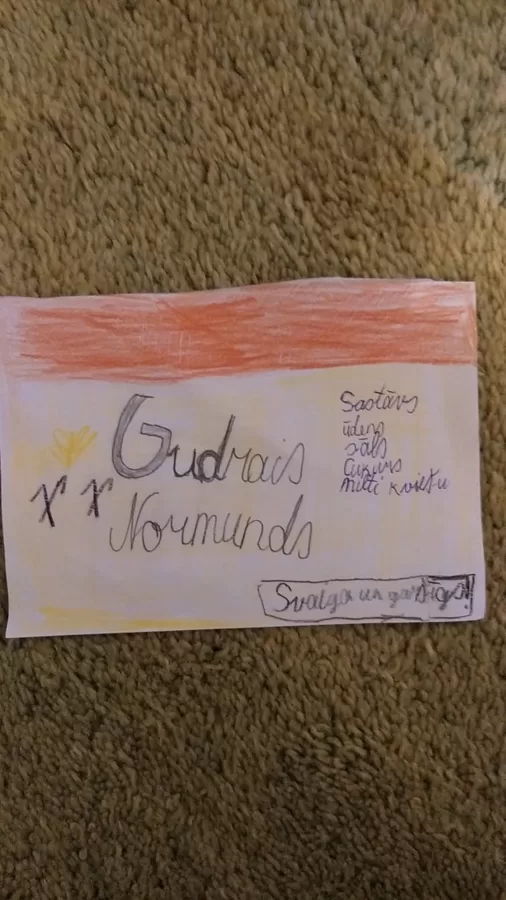 Gudrais
Normunds
Sastāvs
ūdens
sāls
Cukurs
milti kviešu
Svaiga un gardīga!